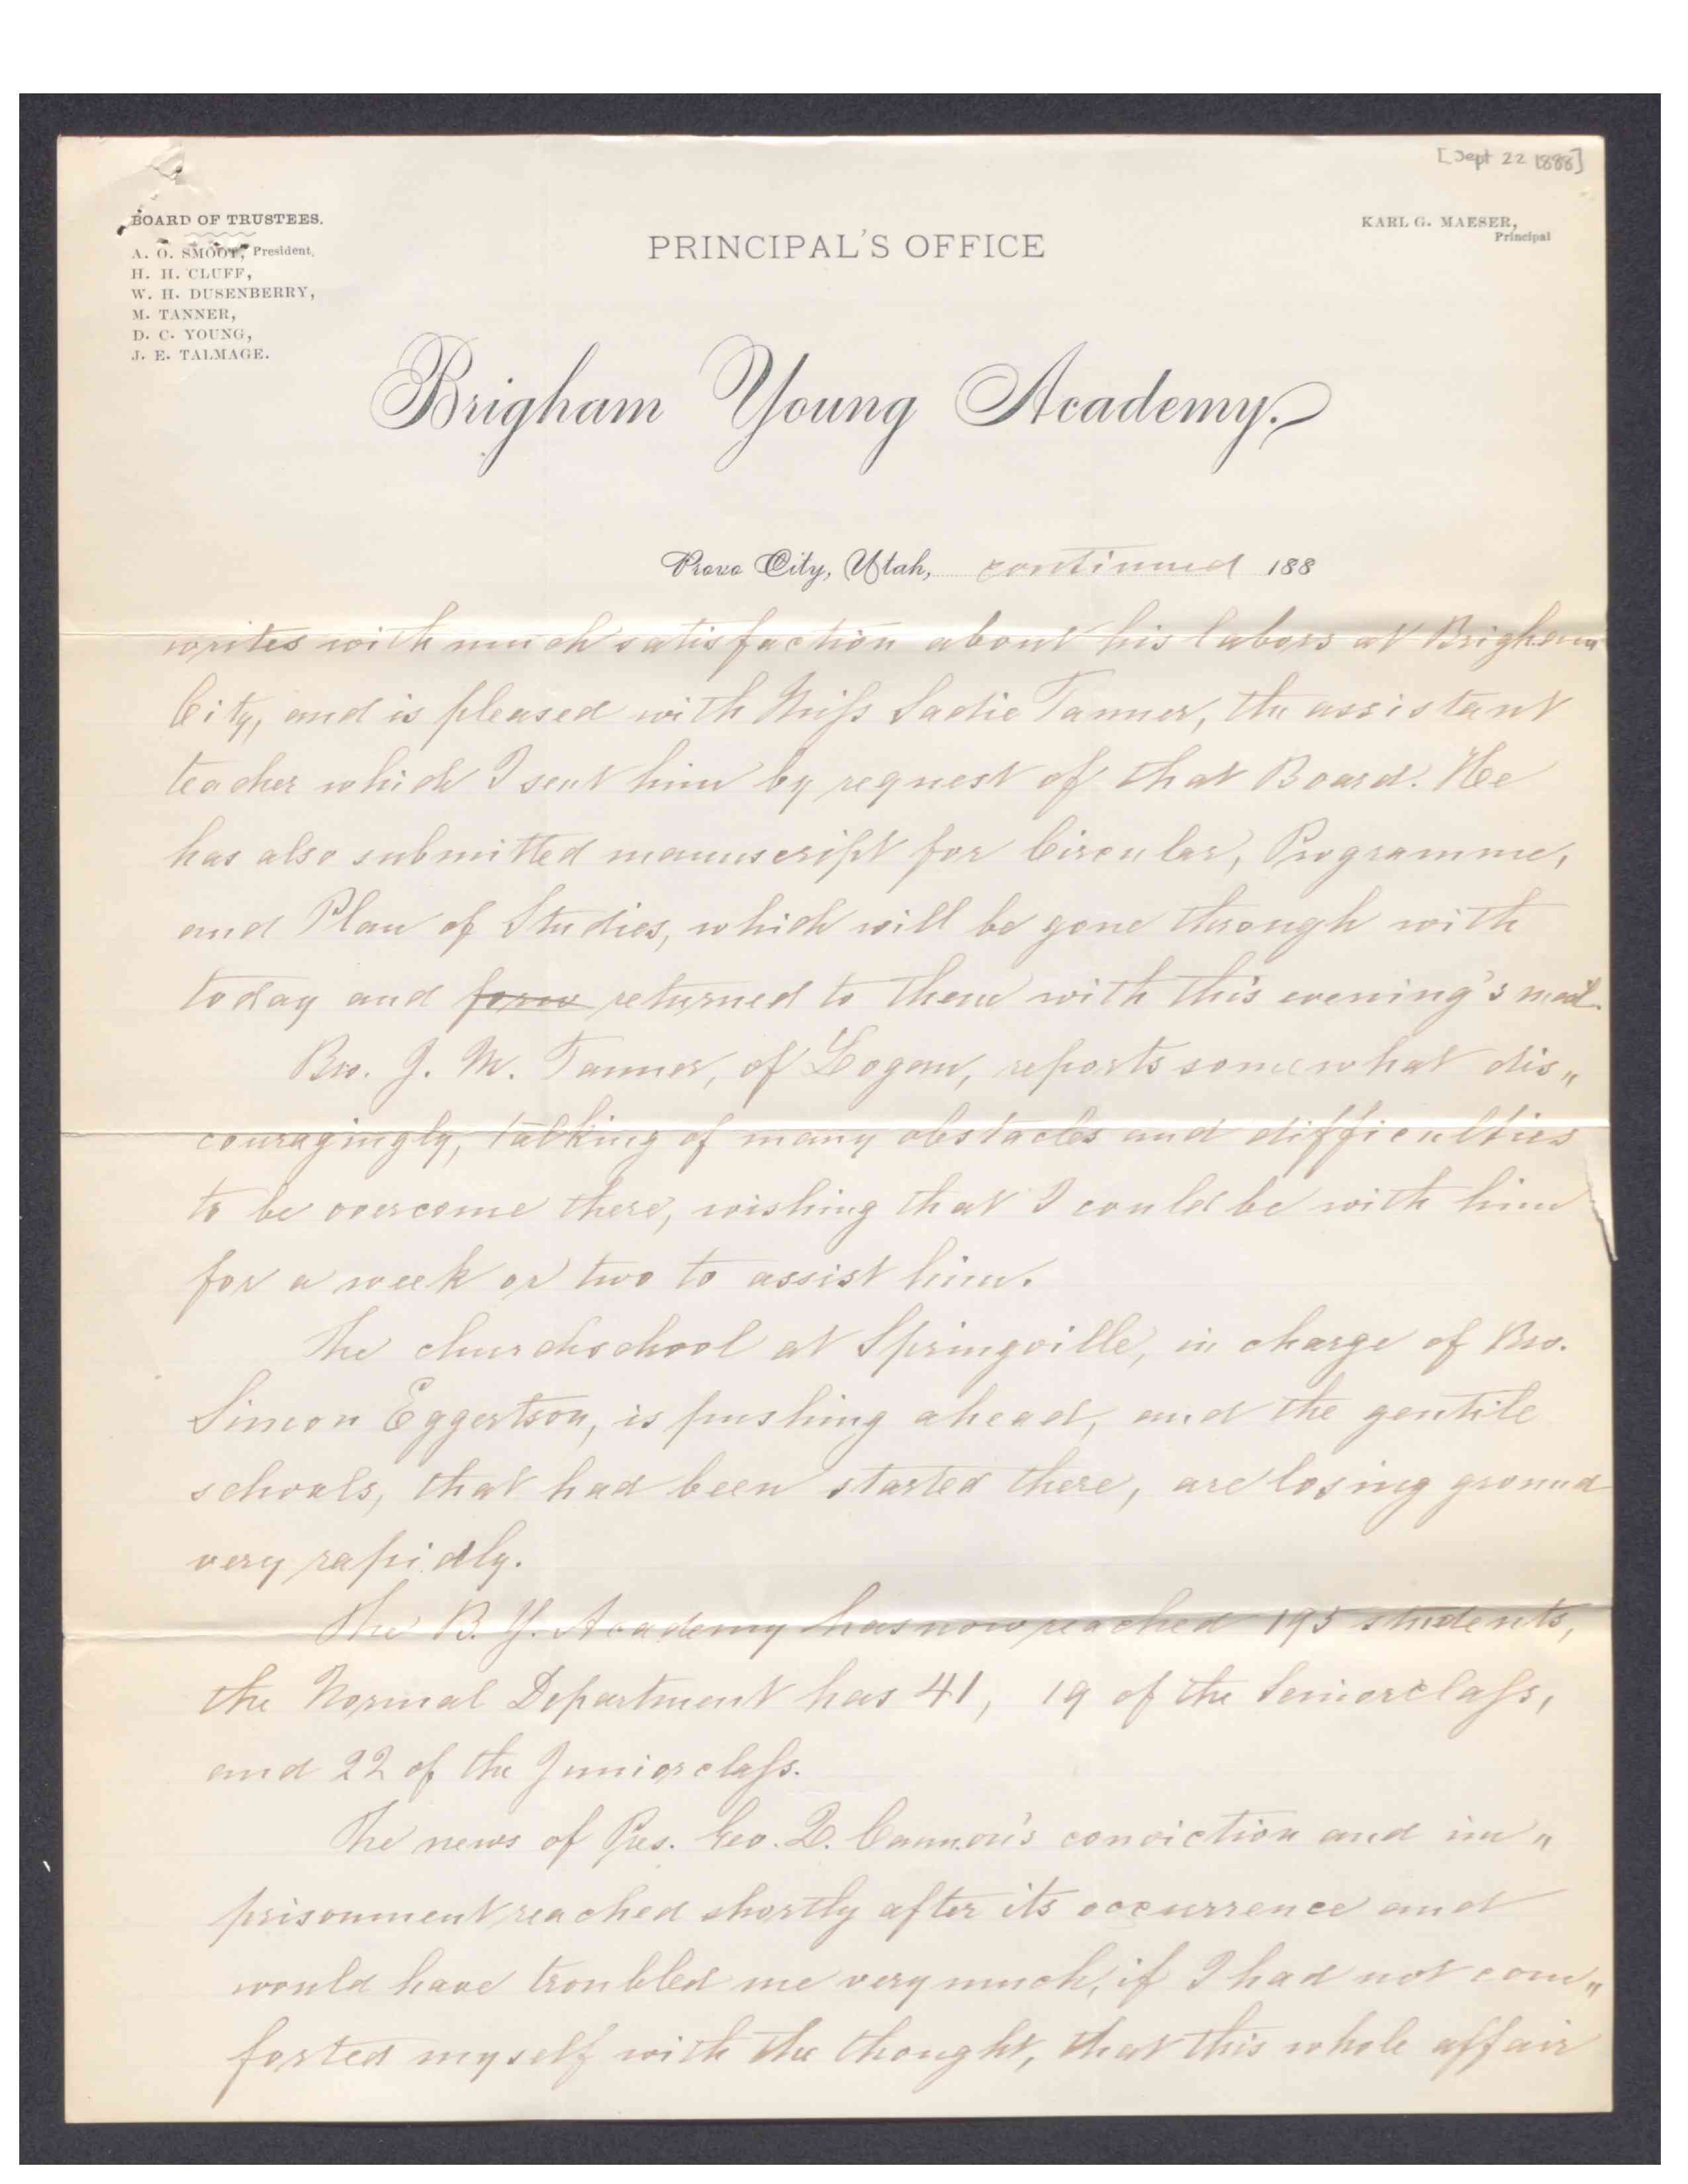 [Sept 22 1888]
BOARD OF TRUSTEES.
A. O. SMOOT, President,
H. H. CLUFF,
W. H. DUSENBERRY,
M. TANNER,
D. C. YOUNG,
J. E. TALMAGE.
PRINCIPAL'S OFFICE
KARL G. MAESER,
Principal
Brigham Young Academy.
Provo City, Utah, continued 188
writes with much satisfaction about his labors at Brigham
City, and is pleased with Miss Sadie Tanner, the assistant
teacher which I sent him by request of that Board. He
has also submitted manuscript for Circular, Programme,
and Plan of Studies, which will be gone through with
today and forw returned to them with this evening's mail.
Bro. J. M. Tanner, of Logan, reports somewhat dis„
couragingly, talking of many obstacles and difficulties
to be overcome there, wishing that I could be with him
for a week or two to assist him.
The churchschool at Springville, in charge of Bro.
Simon Eggertson, is pushing ahead, and the gentile
schools, that had been started there, are losing ground
very rapidly.
The B. Y. Academy has now reached 195 students,
the Normal Department has 41, 19 of the Seniorclass,
and 22 of the Juniorclass.
The news of Pres. Geo. Q. Cannon's conviction and im„
prisonment reached shortly after its occurrence and
would have troubled me very much, if I had not com„
forted myself with the thought, that this whole affair